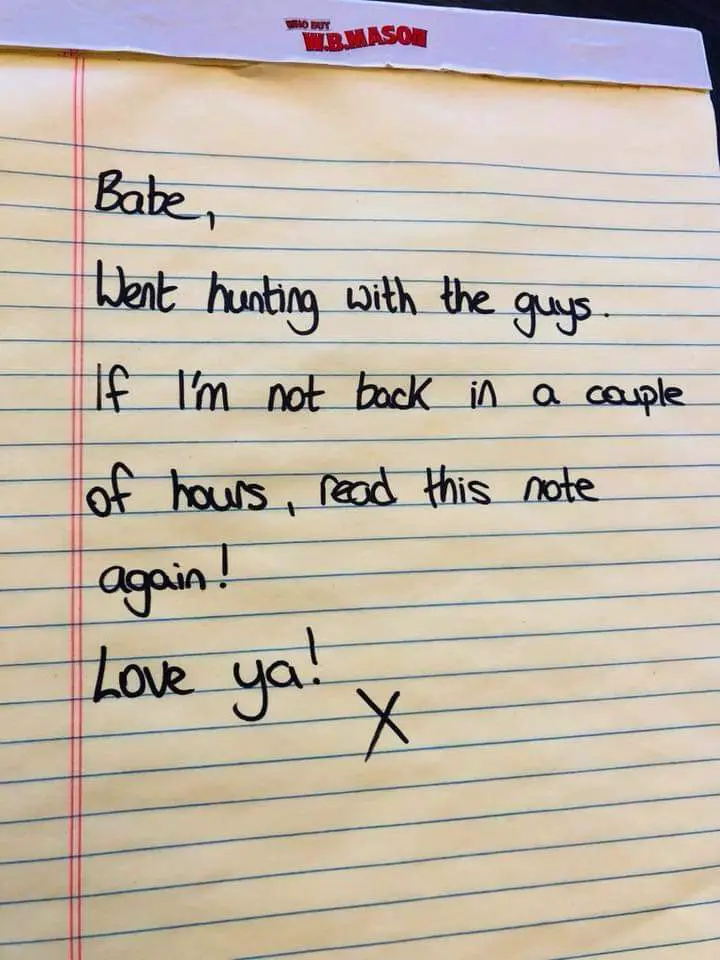 WHO BUT
W.B.MASON
Babe,
Went hunting with the guys.
If I'm not back in a couple
of hours, read this note
again!
Love ya!
X